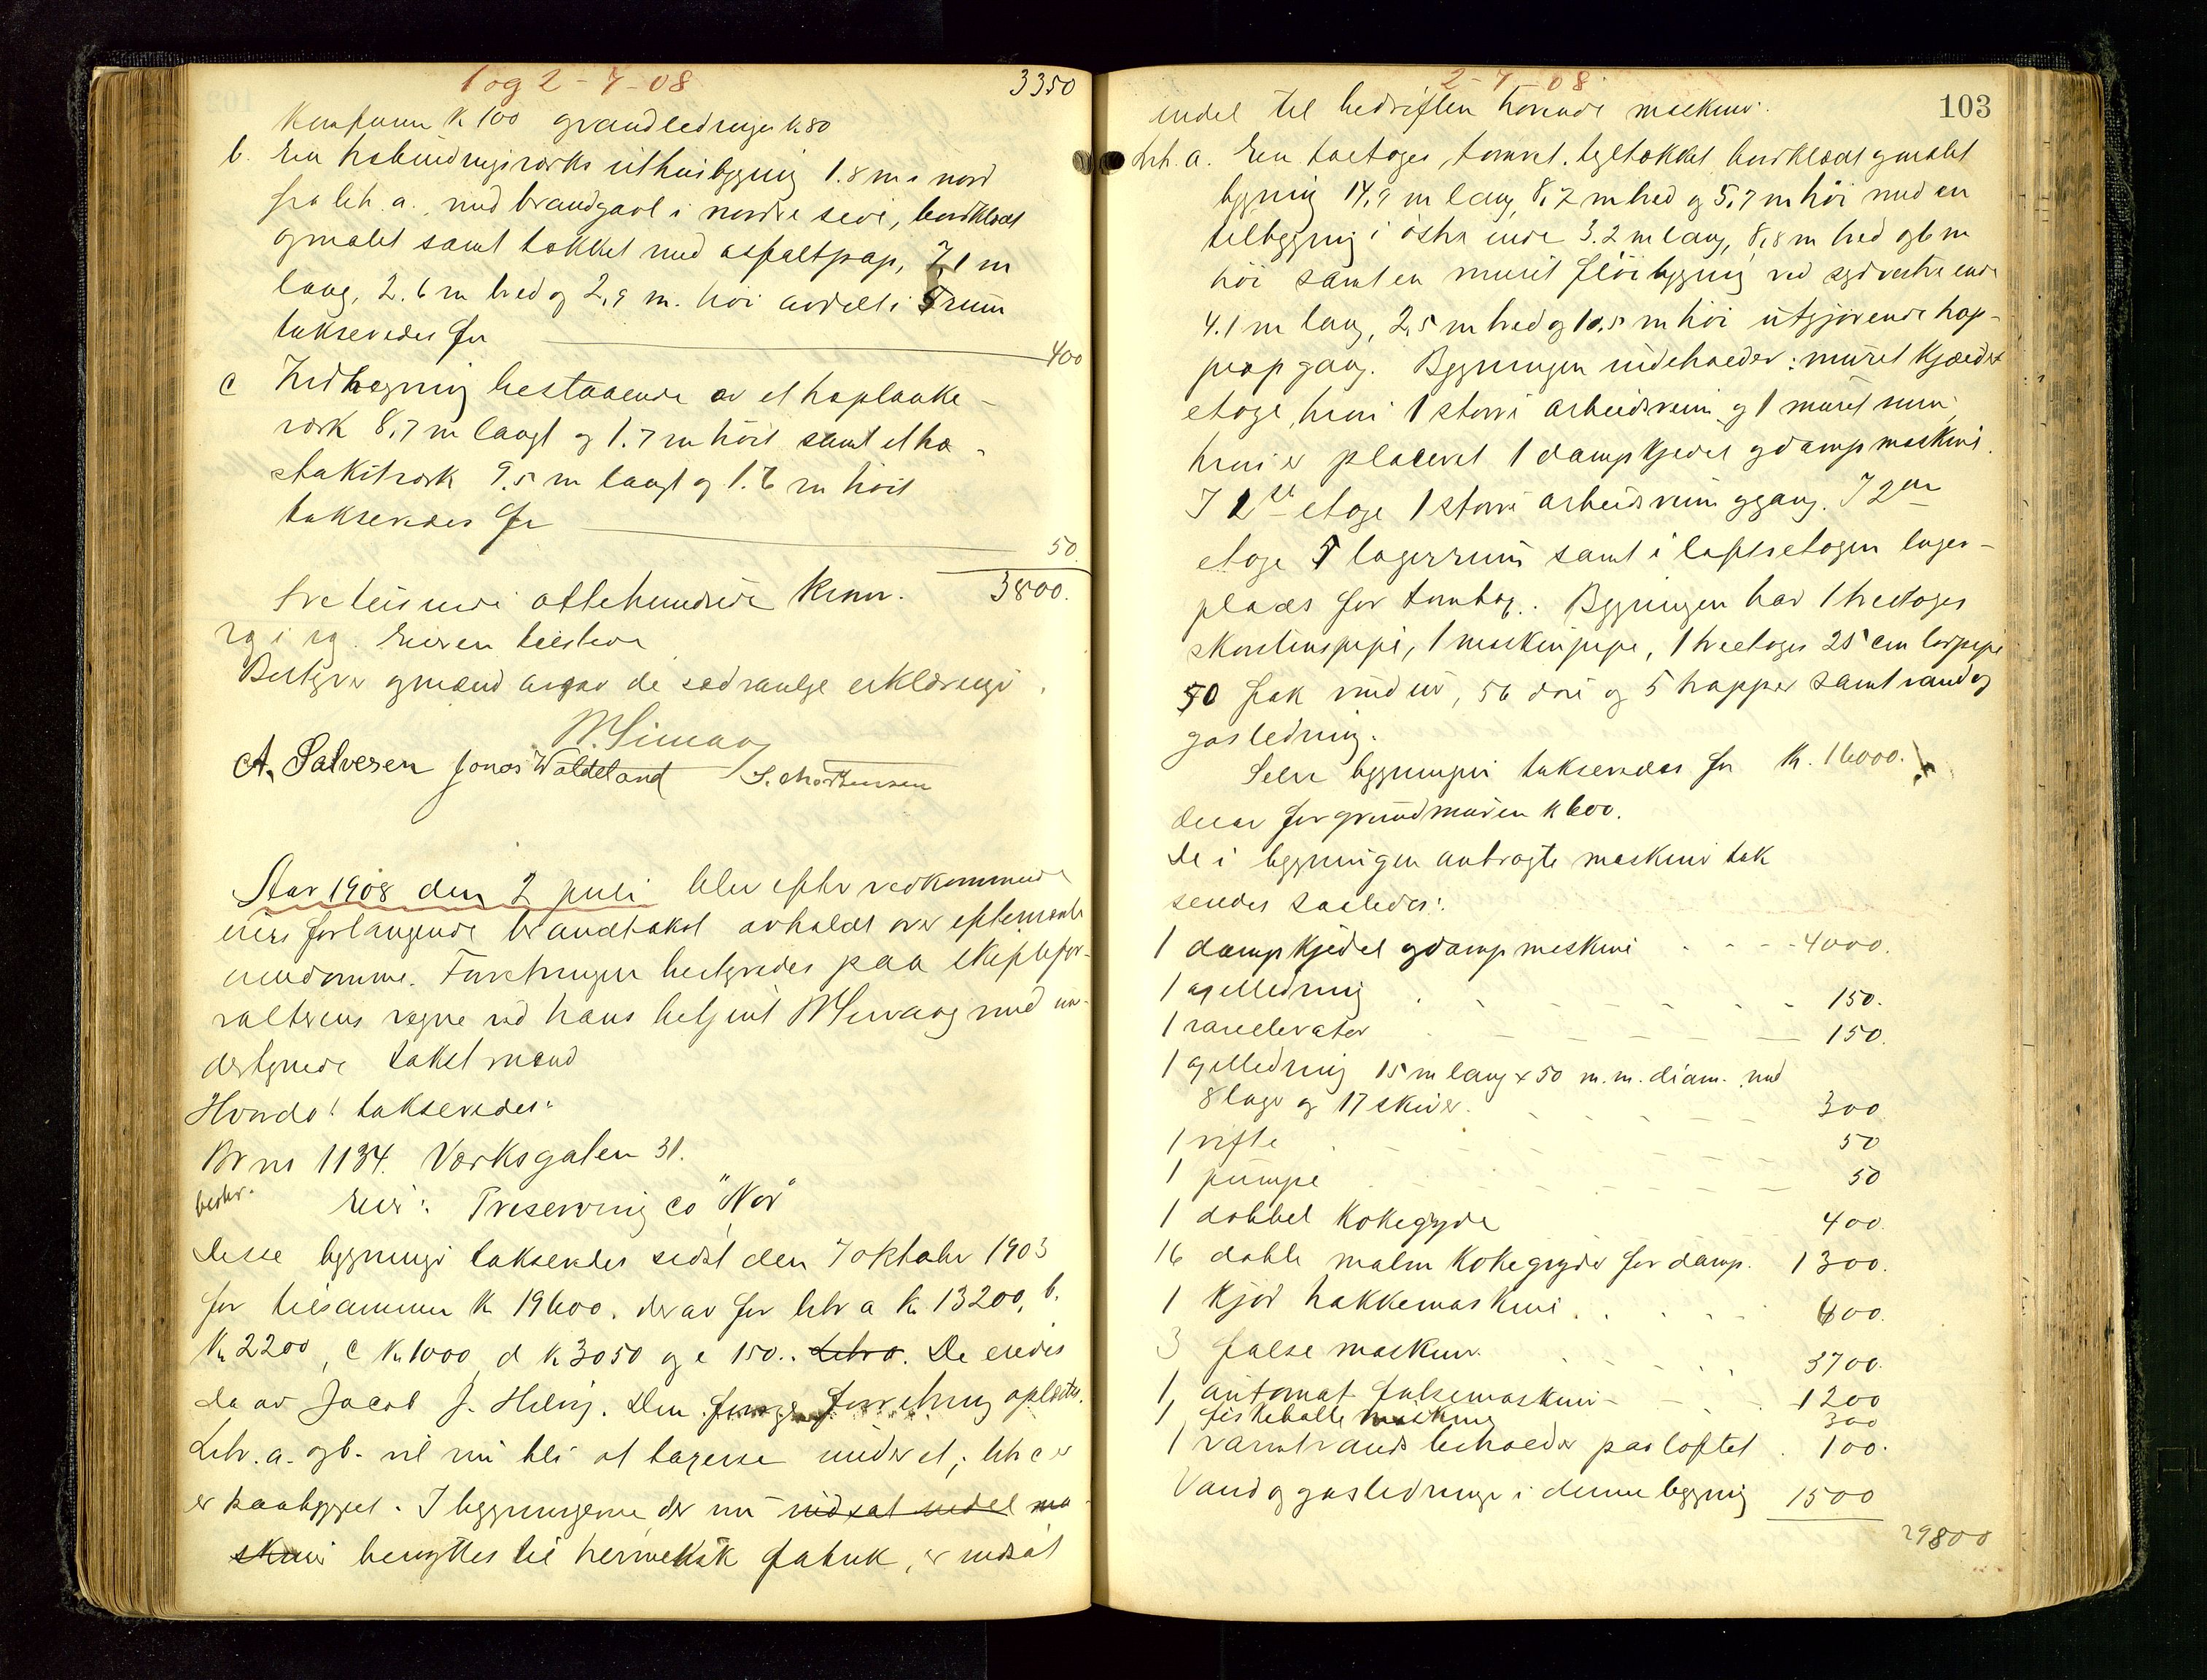 1 og 2-7-08 3350
Komfurer K 100 grundledninger K 80
b. En træbindingsværks uthusbygning 1.8 m i nord
fra litr. a., med brandgavl i nordre side, bordklædt
og malet samt tækket med asfaltpap, 7,1 m
lang, 2.6 m bred og 2,9 m. høi avdelt i 5 rum
takseredes for 400
c Indhegning bestaaende av et træplanke-
værk 8,7 m langt og 1.7 m høit samt et træ-
stakitværk 9.5 m langt og 1.6 m høit
takseredes for 50
tre tusinde ottehundrede Kroner. 3800.
Eieren tilstede
Bestyrer og mænd avgav de sædvanlige erklæringer.
A. Salvesen Jonas Waldeland S. Mortensen
Aar 1908 den 2 juli blev efter vedkommende
eiers forlangende brandtakst avholdt over efternævnte
eiendomme. Forretningen bestyredes paa skiftefor-
valterens vegne ved hans betjent med un-
dertegnede takst mænd
Hvorda: takseredes:
Br no 1134. Værksgaten 31.
beskr. Eier: Preserving Co "Nor"
Disse bygninger takseredes sidst den 7 oktober 1903
for tilsammen K 19600. derav for litr a K. 13200, b.
K 2200, c K 1000, d K 3050 og e 150.. Litr a. De eiedes
da av Jacob J. Helvig. Den forrige forretning oplæstes.
Litr. a. og b. vil nu bli at taxere under et; litr c er
er paabygget. I bygningerne der nu indsat endel ma-
skiner benyttes til hermetik fabrik, er indsat
2-7-08 103
endel til bedriften hørende maskiner.
Litr. a. En toetages, tømret, tegltækket bordklædt og malet
bygning 14,9 m lang, 8,2 m bred og 5,7 m høi med en
tilbygning i østre ende 3.2 m lang, 8,8 m bred og 6 m
høi samt en muret fløibygning ved sydvestre ende
4.1 m lang, 2,5 m bred og 10,5 m høi utgjørende trap-
peopgang. Bygningen indeholder: muret kjælder
etage, hvori 1 større arbeidsrum og 1 muret rum
hvori er placeret 1 dampkjedel og dampmaskine.
I 1ste etage 1 større arbeidsrum og gang. I 2den
etage 5 lagerrum samt i loftsetagen lager-
plads for tomtøi. Bygningen har 1 treetages
skorstenspipe, 1 maskinpipe, 1 treetages 25 cm
50 fak vinduer, 56 døre og 5 trapper samt vand og
gasledning.
Selve bygningen takseredes for K. 16000.
derav for grundmuren K 600.
De i bygningen anbragte maskiner tak
seredes saaledes:
1 dampkjedel og dampmaskine 4000.
1 axelledning 150.
1 vareelevator 150.
1 axelledning 15 m lang x 50 m.m. diam. med
8 lager og 17 skiver. 300
1 vifte 50
1 pumpe 50
1 dobbel kokegryde 400.
16 doble malm kokegryder for damp. 1300.
1 kjød hakkemaskine 600.
3 false maskiner 3700.
1 automat falsemaskine 1200
1 fiskebolle maskine 300
1 varmtvands beholder paa loftet 100.
Vand og gasledninger i denne bygning 1500
29800